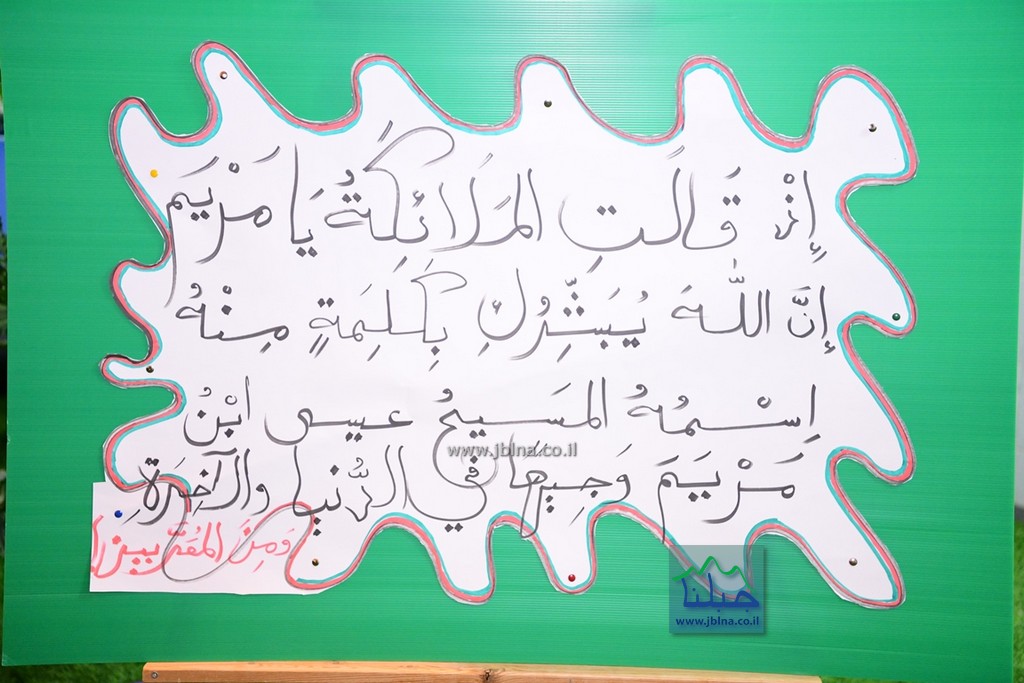 إِذْ قَالَتِ المَلَائِكَةُ يَا مَرْيَم
إِنَّ اللّٰهَ يُبَشِّرُكِ بِكَلِمَةٍ مِنْهُ
اِسْمُهُ المَسَيحُ عيسى ابْنُ
مَرْيَمَ وَجِيهَا في الدُّنيا والآخِرَةِ
وَمِنَ المُقَرَّبين
www.jblna.co.il
جبلنا
www.jblna.co.il